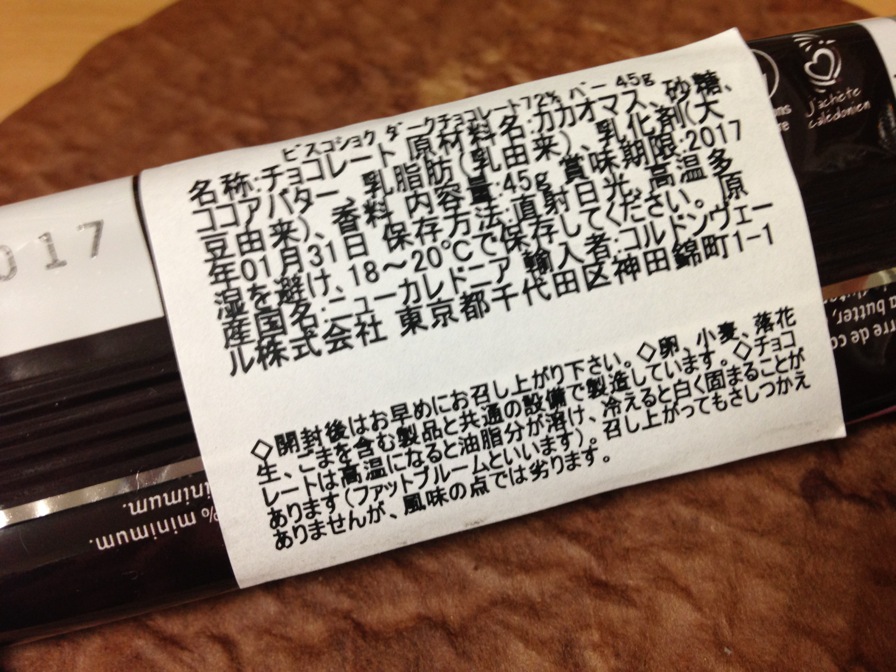 ビスコショク ダークチョコレート72% バー 45g
名称:チョコレート 原材料名:カカオマス、砂糖、
ココアバター、乳脂肪(乳由来)、乳化剤(大
豆由来)、香料 内容量:45g 賞味期限:2017
年01月31日 保存方法:直射日光、高温多
湿を避け、18~20℃で保存してください。 原
産国名:ニューカレドニア 輸入者:コルドンヴェー
ル株式会社 東京都千代田区神田錦町1-1
◇開封後はお早めにお召し上がり下さい。◇卵、小麦、落花
生、ごまを含む製品と共通の設備で製造しています。◇チョコ
レートは高温になると油脂分が溶け、冷えると白く固まることが
あります(ファットブルームといいます)。召し上がってもさしつかえ
ありませんが、風味の点では劣ります。
017
% minimum.
minimum.
J'achète
calédonien
butter,